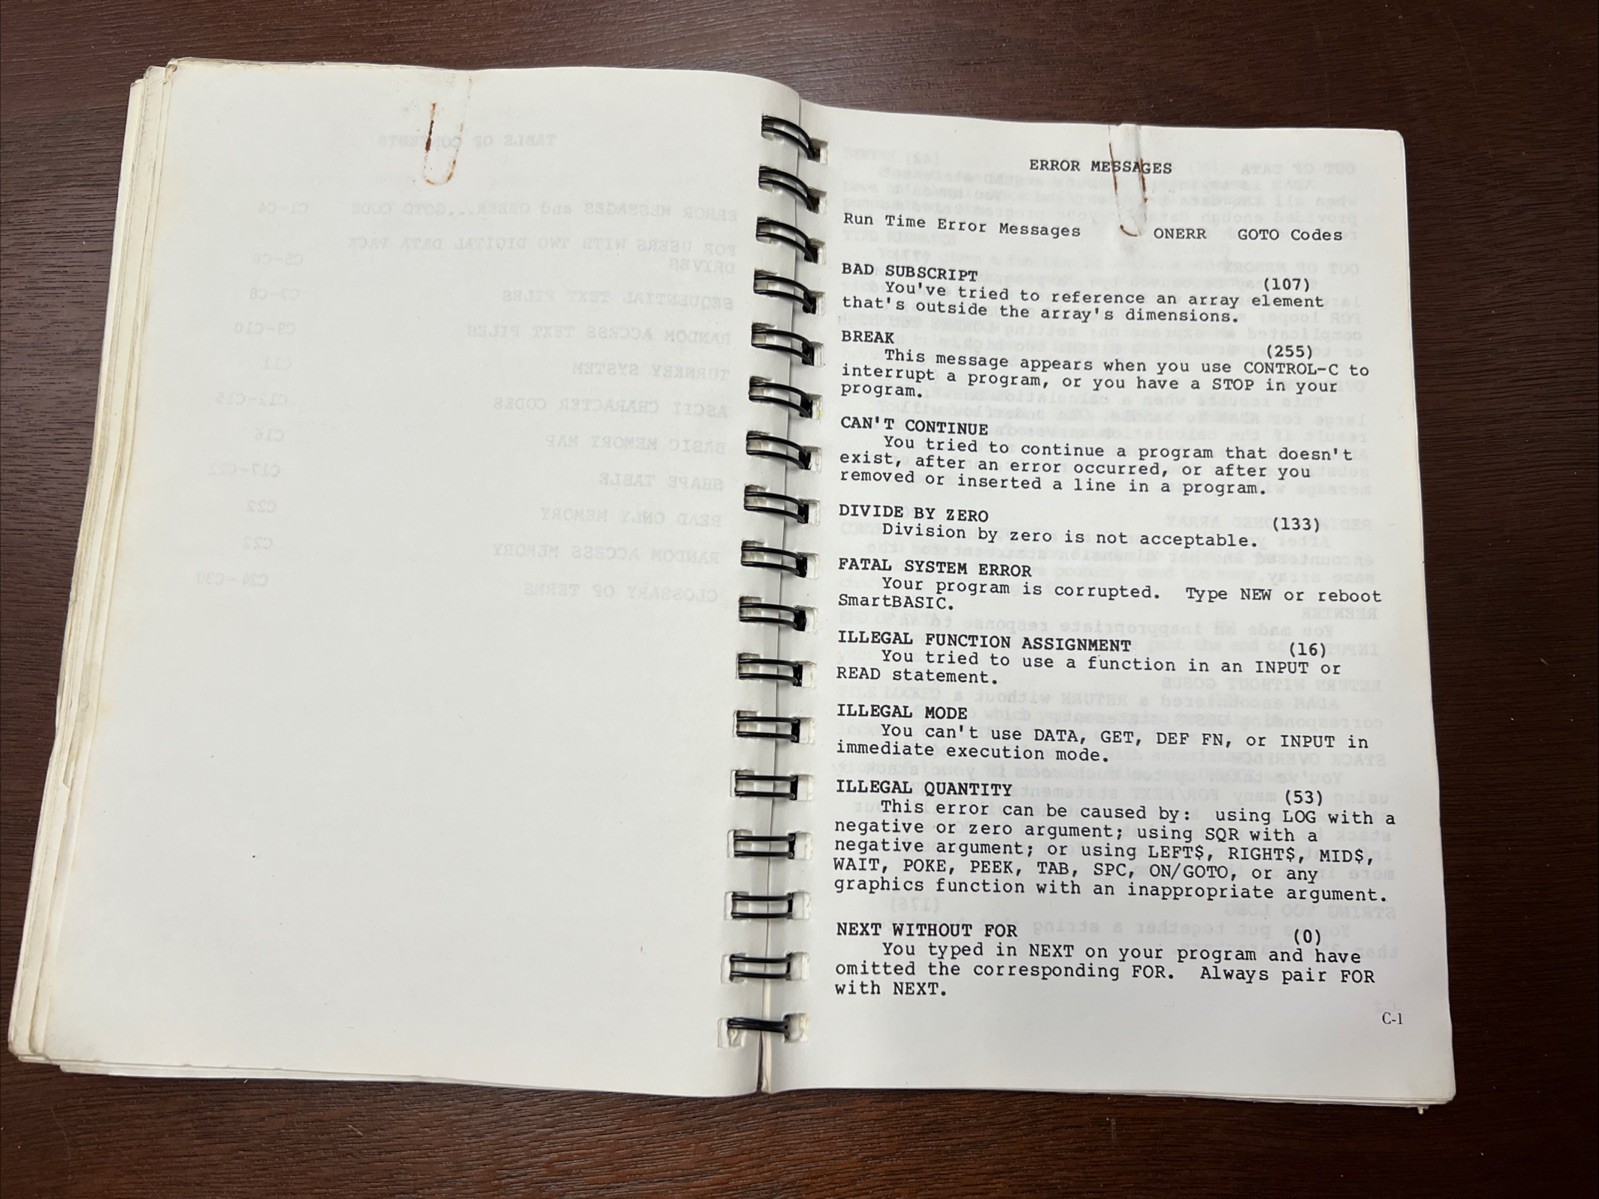 ERROR MESSAGES
Run Time Error Messages ONERR GOTO Codes
BAD SUBSCRIPT (107)
You've tried to reference an array element
that's outside the array's dimensions.
BREAK (255)
This message appears when you use CONTROL-C to
interrupt a program, or you have a STOP in your
program.
CAN'T CONTINUE
You tried to continue a program that doesn't
exist, after an error occurred, or after you
removed or inserted a line in a program.
DIVIDE BY ZERO (133)
Division by zero is not acceptable.
FATAL SYSTEM ERROR
Your program is corrupted. Type NEW or reboot
SmartBASIC.
ILLEGAL FUNCTION ASSIGNMENT (16)
You tried to use a function in an INPUT or
READ statement.
ILLEGAL MODE
You can't use DATA, GET, DEF FN, or INPUT in
immediate execution mode.
ILLEGAL QUANTITY (53)
This error can be caused by: using LOG with a
negative or zero argument; using SQR with a
negative argument; or using LEFT$, RIGHT$, MID$,
WAIT, POKE, PEEK, TAB, SPC, ON/GOTO, or any
graphics function with an inappropriate argument.
NEXT WITHOUT FOR (0)
You typed in NEXT on your program and have
omitted the corresponding FOR. Always pair FOR
with NEXT.
C-1